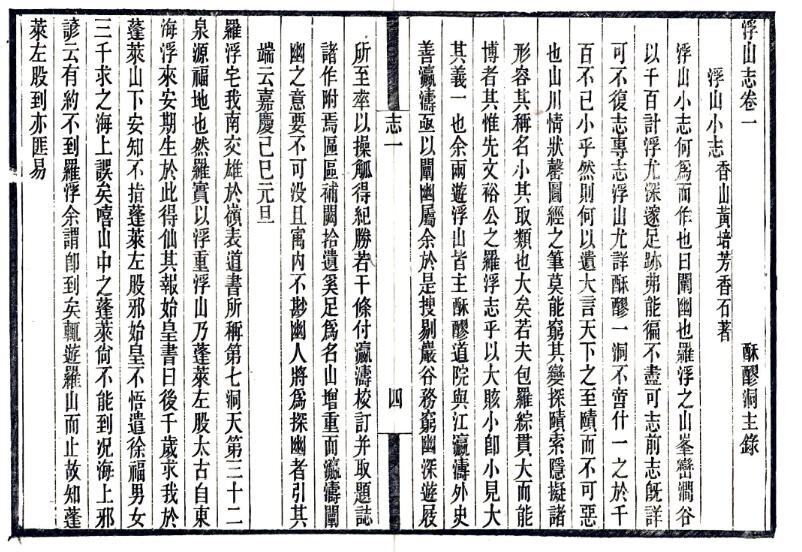 浮山志卷一
酥醪洞主錄
浮山小志
香山黃培芳香石著
浮山小志何爲而作也曰闡幽也羅浮之山峯巒澗谷
以千百計浮尤深邃足跡弗能徧不盡可志前志既詳
可不復志專志浮山尤詳酥醪一洞不啻什一之於千
百不已小乎然則何以遺大言天下之至賾而不可惡
也山川情狀罄圖經之筆莫能窮其變探賾索隱擬諸
形容其稱名小其取類也大矣若夫包羅綜貫大而能
博者其惟先文裕公之羅浮志乎以大賅小卽小見大
其義一也余兩遊浮山皆主酥醪道院與江瀛濤外史
善瀛濤亟以闡幽屬余於是搜剔巖谷務窮幽深遊屐
志一
四
所至率以操觚得紀勝若干條付瀛濤校訂并取題誌
諸作附焉區區補闕拾遺奚足爲名山增重而瀛濤闡
幽之意要不可没且寓內不尠幽人將爲探幽者引其
端云嘉慶己巳元旦
羅浮宅我南交雄於嶺表道書所稱第七洞天第三十二
泉源福地也然羅實以浮重浮山乃蓬萊左股太古自東
海浮來安期生於此得仙其報始皇書曰後千歲求我於
蓬萊山下安知不指蓬萊左股邪始皇不悟遣徐福男女
三千求之海上誤矣嘻山中之蓬萊尙不能到况海上邪
諺云有約不到羅浮余謂卽到矣輒遊羅山而止故知蓬
萊左股到亦匪易